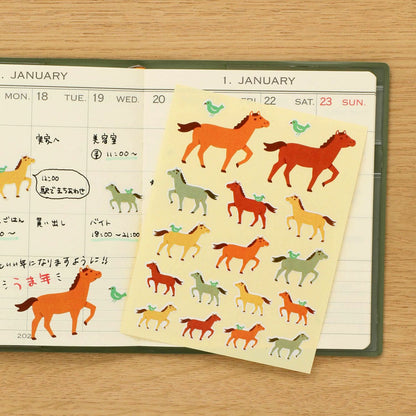 . JANUARY
1. JANUARY
MON. 18 TUE. 19 WED. 20
FRI. 22 SAT. 23 SUN.
実家へ
美容室
11:00〜
12:00
駅でまちあわせ
ごはん
買い出し
バイト
18:00〜21:00
いい年になりますように!!
うま年
202